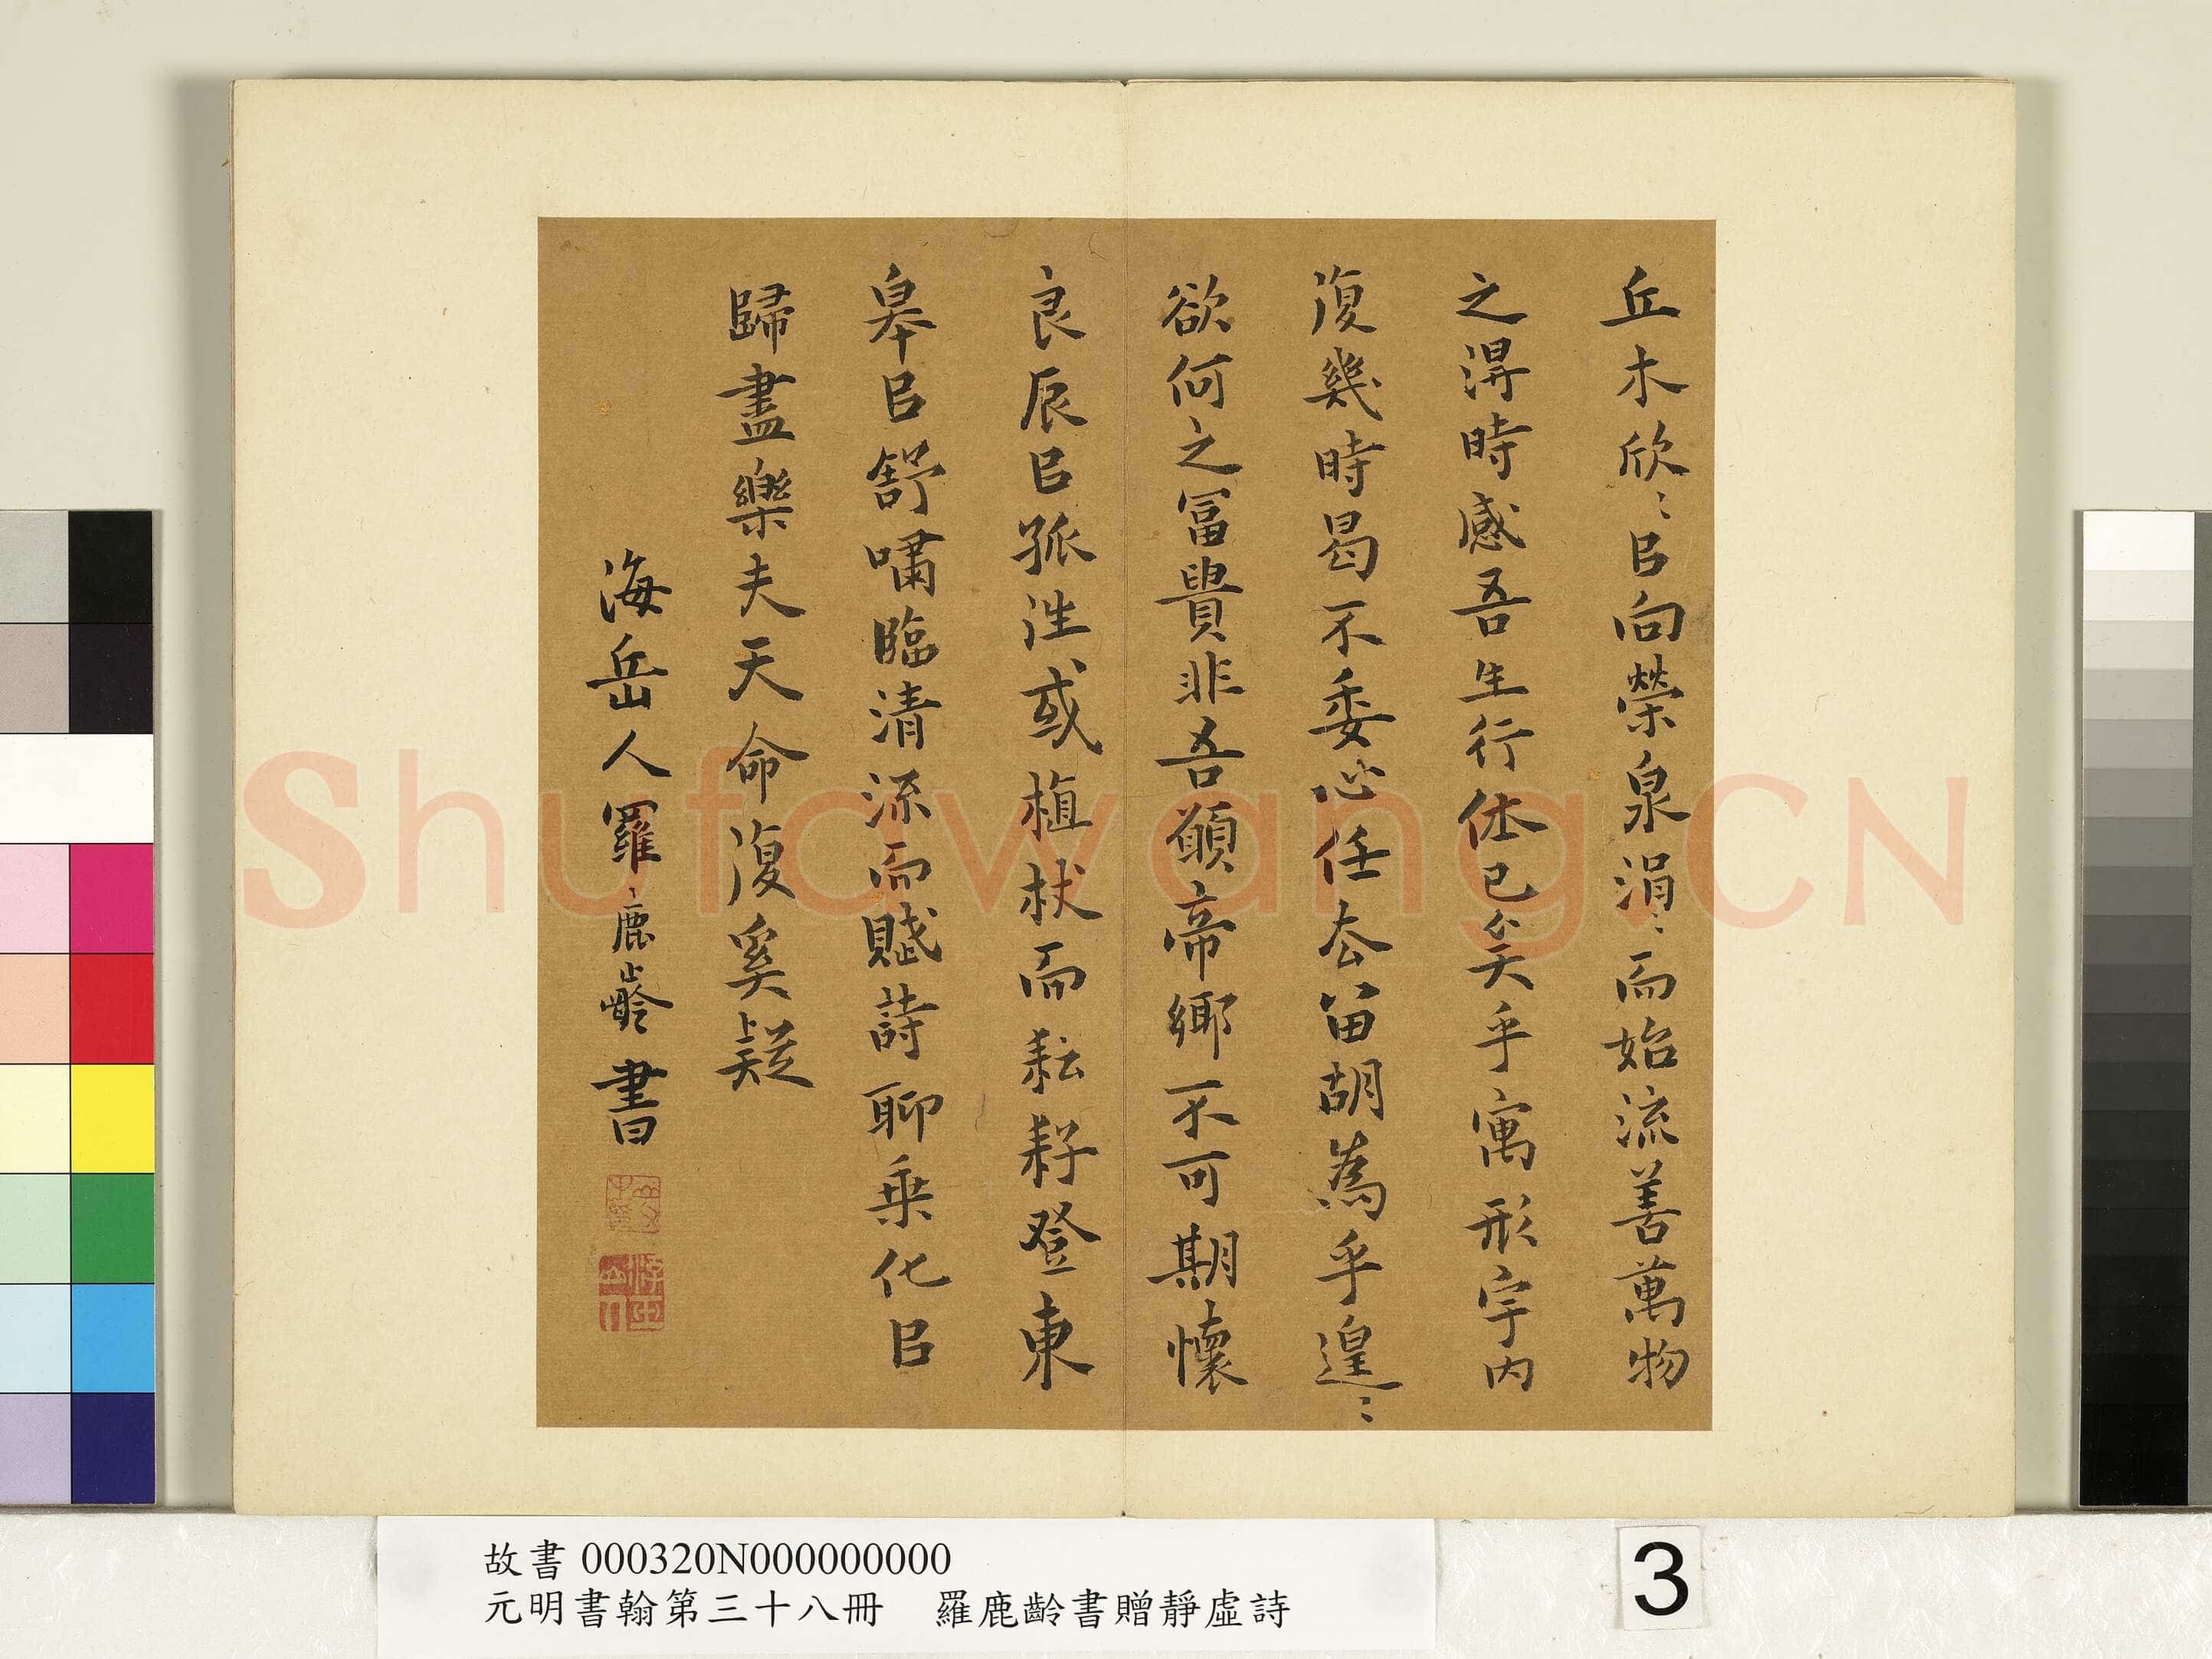 丘木欣〻㠯向榮泉涓〻而始流善萬物
之淂時感吾生行休已矣乎寓形宇内
復幾時曷不委心任去留胡為乎遑〻
欲何之冨貴非吾願帝鄉不可期懷
良辰㠯孤淮或植杖而耘耔登東
皋㠯舒嘯臨清流而賦詩聊乗化㠯
歸盡樂夫天命復奚疑
海岳人羅鹿齡書
Shufawang.CN
故書 000320N000000000
元明書翰第三十八冊 羅鹿齡書贈靜虛詩
3